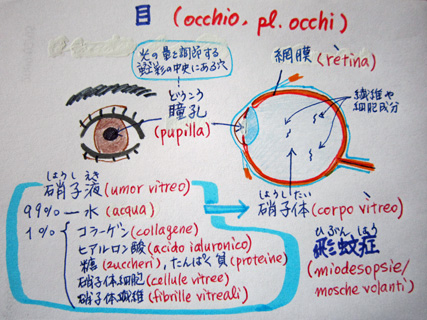 目 (occhio, pl. occhi)
光の量を調節する
虹彩の中央にある穴
どうこう
瞳孔
(pupilla)
網膜 (rètina)
繊維や
細胞成分
しょうしえき
硝子液 (umor vitreo)
99% — 水 (acqua)
1% コラーゲン (collagene)
ヒアルロン酸 (acido ialuronico)
糖 (zuccheri), たんぱく質 (proteine)
硝子体細胞 (cellule vitree)
硝子体繊維 (fibrille vitreali)
しょうしたい
硝子体 (corpo vitreo)
ひぶんしょう
飛蚊症
(miodesopsie/
mosche volanti)